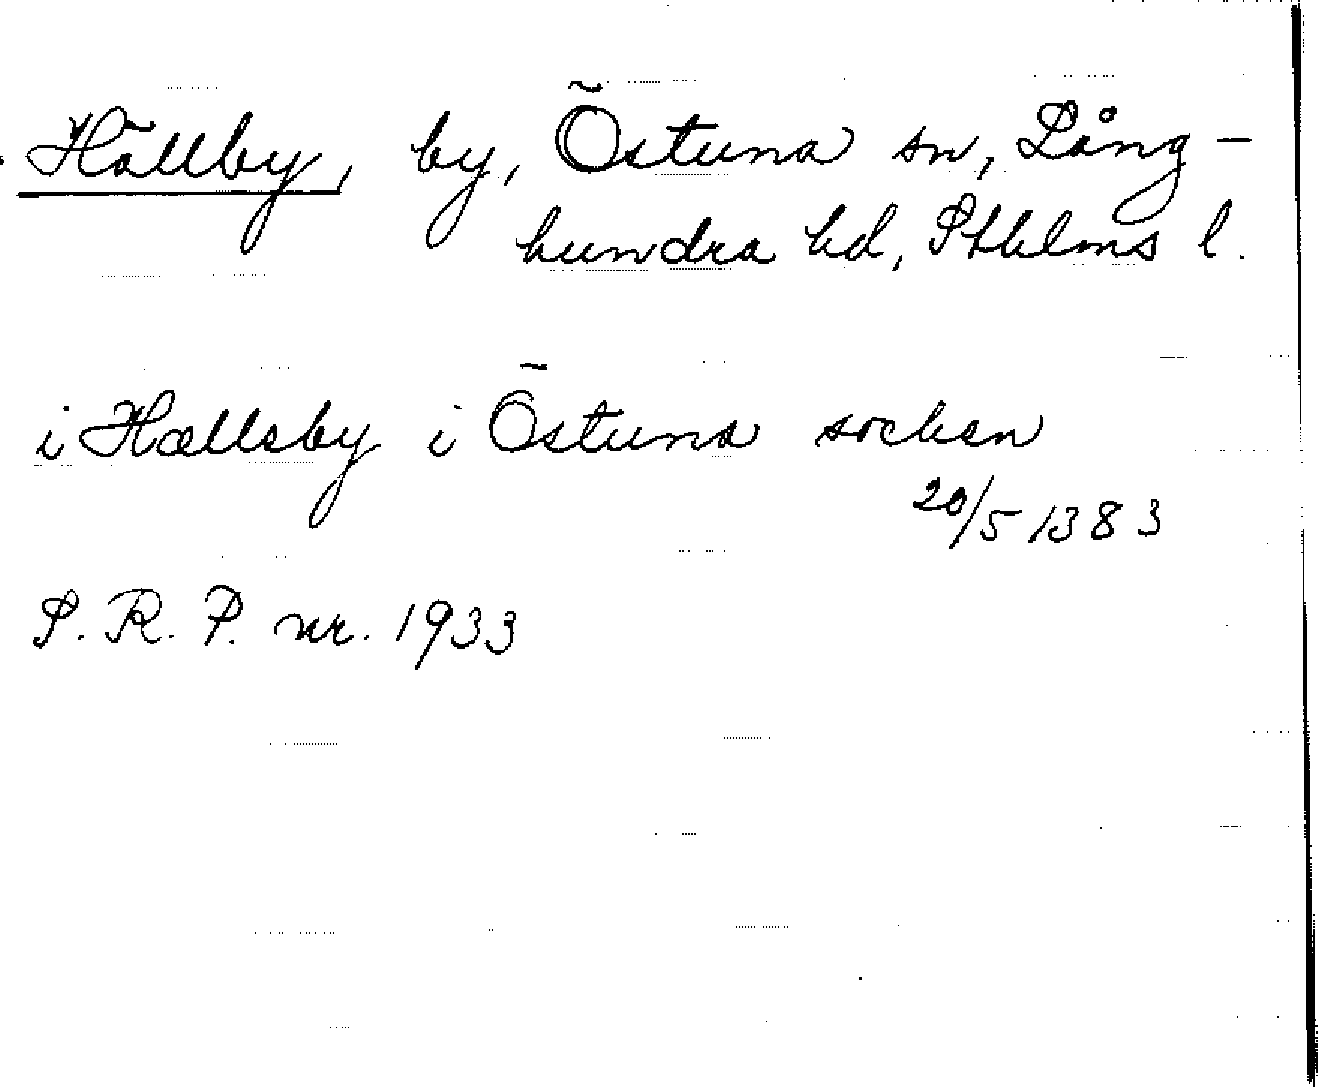 Hällby, by, Östuna sn, Lång-
hundra hd, Sthlms l.
i Hællsby i Östuna socken
20/5 1383
S. R. P. nr. 1933